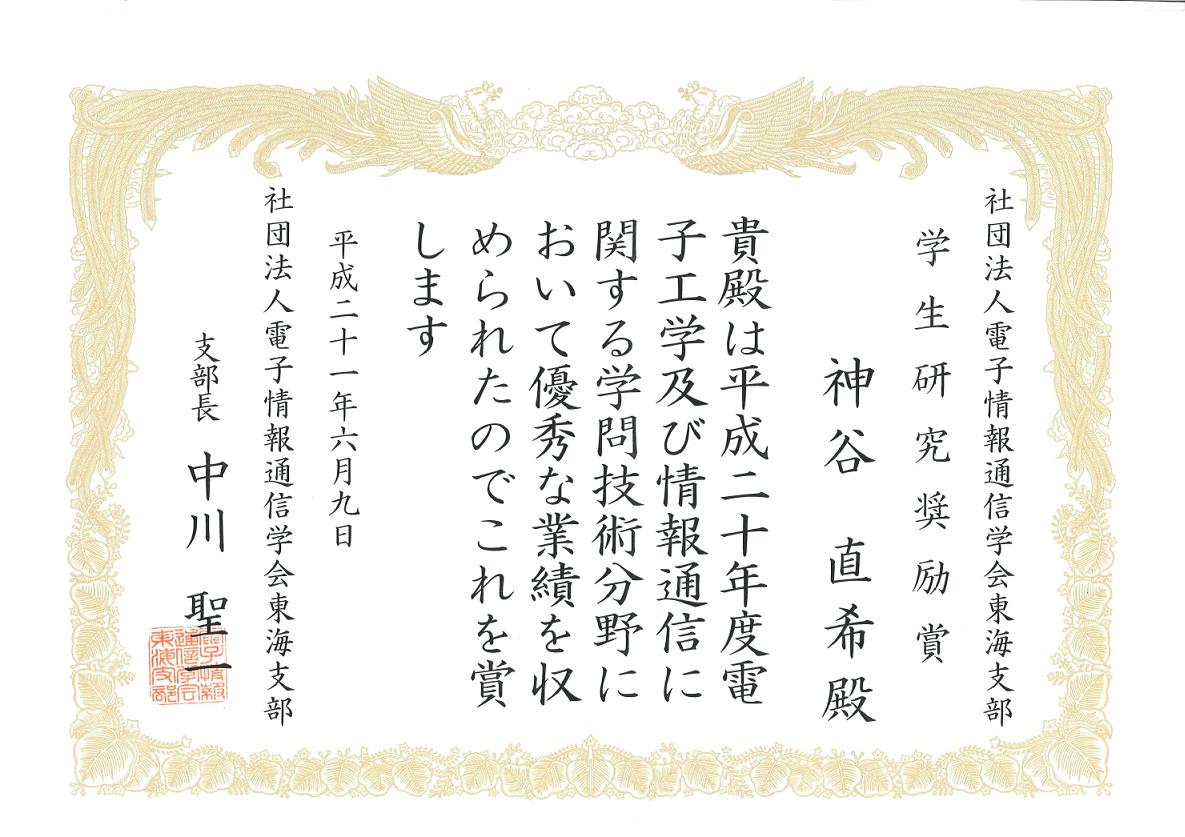 社団法人電子情報通信学会東海支部
学生研究奨励賞
神谷 直希殿
貴殿は平成二十年度電
子工学及び情報通信に
関する学問技術分野に
おいて優秀な業績を収
められたのでこれを賞
します
平成二十一年六月九日
社団法人電子情報通信学会東海支部
支部長 中川 聖一